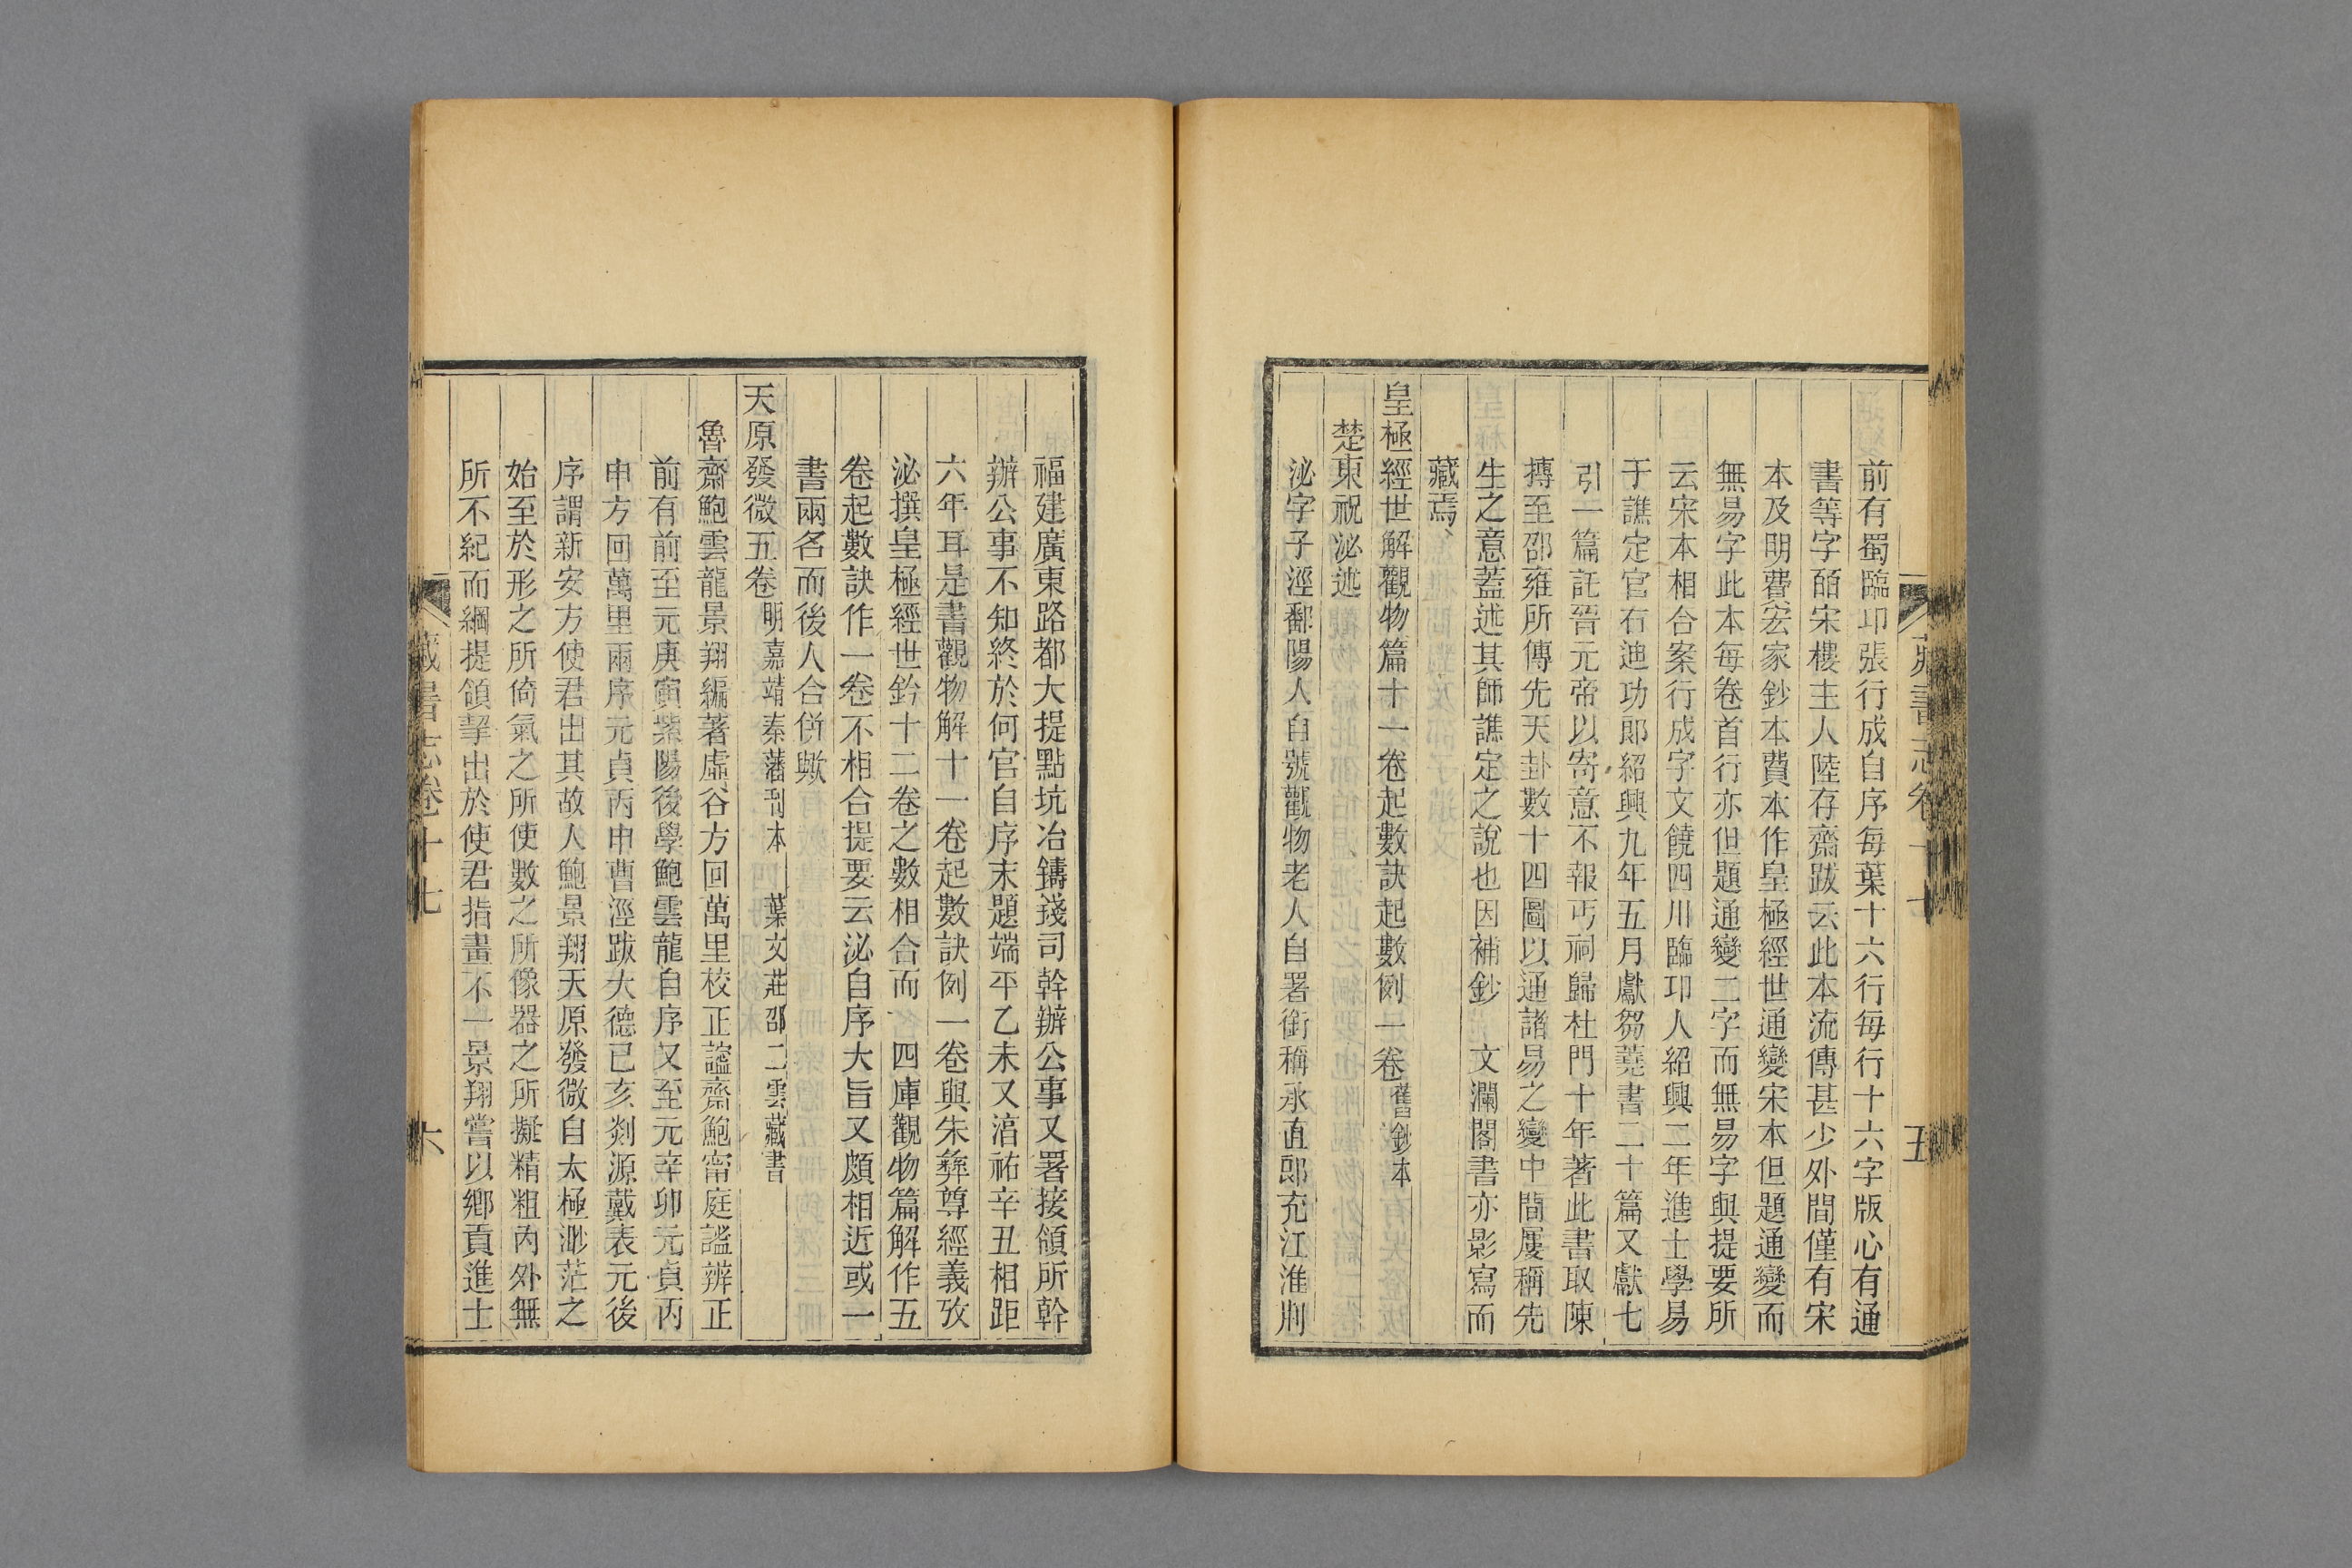 前有蜀臨卭張行成自序每葉十六行每行十六字版心有通
書等字皕宋樓主人陸存齋跋云此本流傳甚少外間僅有宋
本及明費宏家鈔本費本作皇極經世通變宋本但題通變而
無易字此本每卷首行亦但題通變二字而無易字與提要所
云宋本相合案行成字文饒四川臨卭人紹興二年進士學易
于譙定官右迪功郎紹興九年五月獻芻蕘書二十篇又獻七
引一篇託晉元帝以寄意不報丐祠歸杜門十年著此書取陳
摶至邵雍所傳先天卦數十四圖以通諸易之變中間屢稱先
生之意蓋述其師譙定之說也因補鈔 文瀾閣書亦影寫而
藏焉
皇極經世解觀物篇十一卷起數訣起數例一卷舊鈔本
楚東祝泌述
泌字子涇鄱陽人自號觀物老人自署銜稱承直郎充江淮荆
藏書志卷十七
五
福建廣東路都大提點坑冶鑄錢司幹辦公事又署接領所幹
辦公事不知終於何官自序末題端平乙未又淳祐辛丑相距
六年耳是書觀物解十一卷起數訣例一卷與朱彝尊經義攷
泌撰皇極經世鈐十二卷之數相合而 四庫觀物篇解作五
卷起數訣作一卷不相合提要云泌自序大旨又頗相近或一
書兩名而後人合倂歟
天原發微五卷明嘉靖秦藩刊本 葉文莊邵二雲藏書
魯齋鮑雲龍景翔編著虛谷方回萬里校正謐齋鮑甯庭謐辨正
前有前至元庚寅紫陽後學鮑雲龍自序又至元辛卯元貞丙
申方回萬里兩序元貞丙申曹涇跋大德己亥剡源戴表元後
序謂新安方使君出其故人鮑景翔天原發微自太極渺茫之
始至於形之所倚氣之所使數之所像器之所擬精粗內外無
所不紀而綱提領挈出於使君指畫不一景翔嘗以鄉貢進士
藏書志卷十七
六